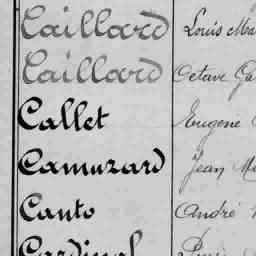 Caillard Louis Ma
Caillard Octave Ga
Callet Eugene
Camuzard Jean M
Canto André
Cardinal